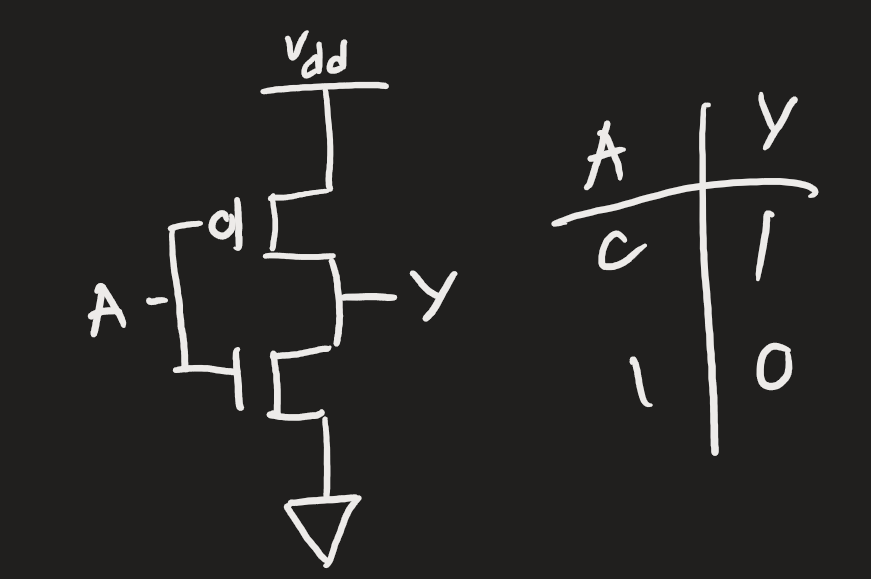 Vdd
A Y
A Y
0 1
1 0